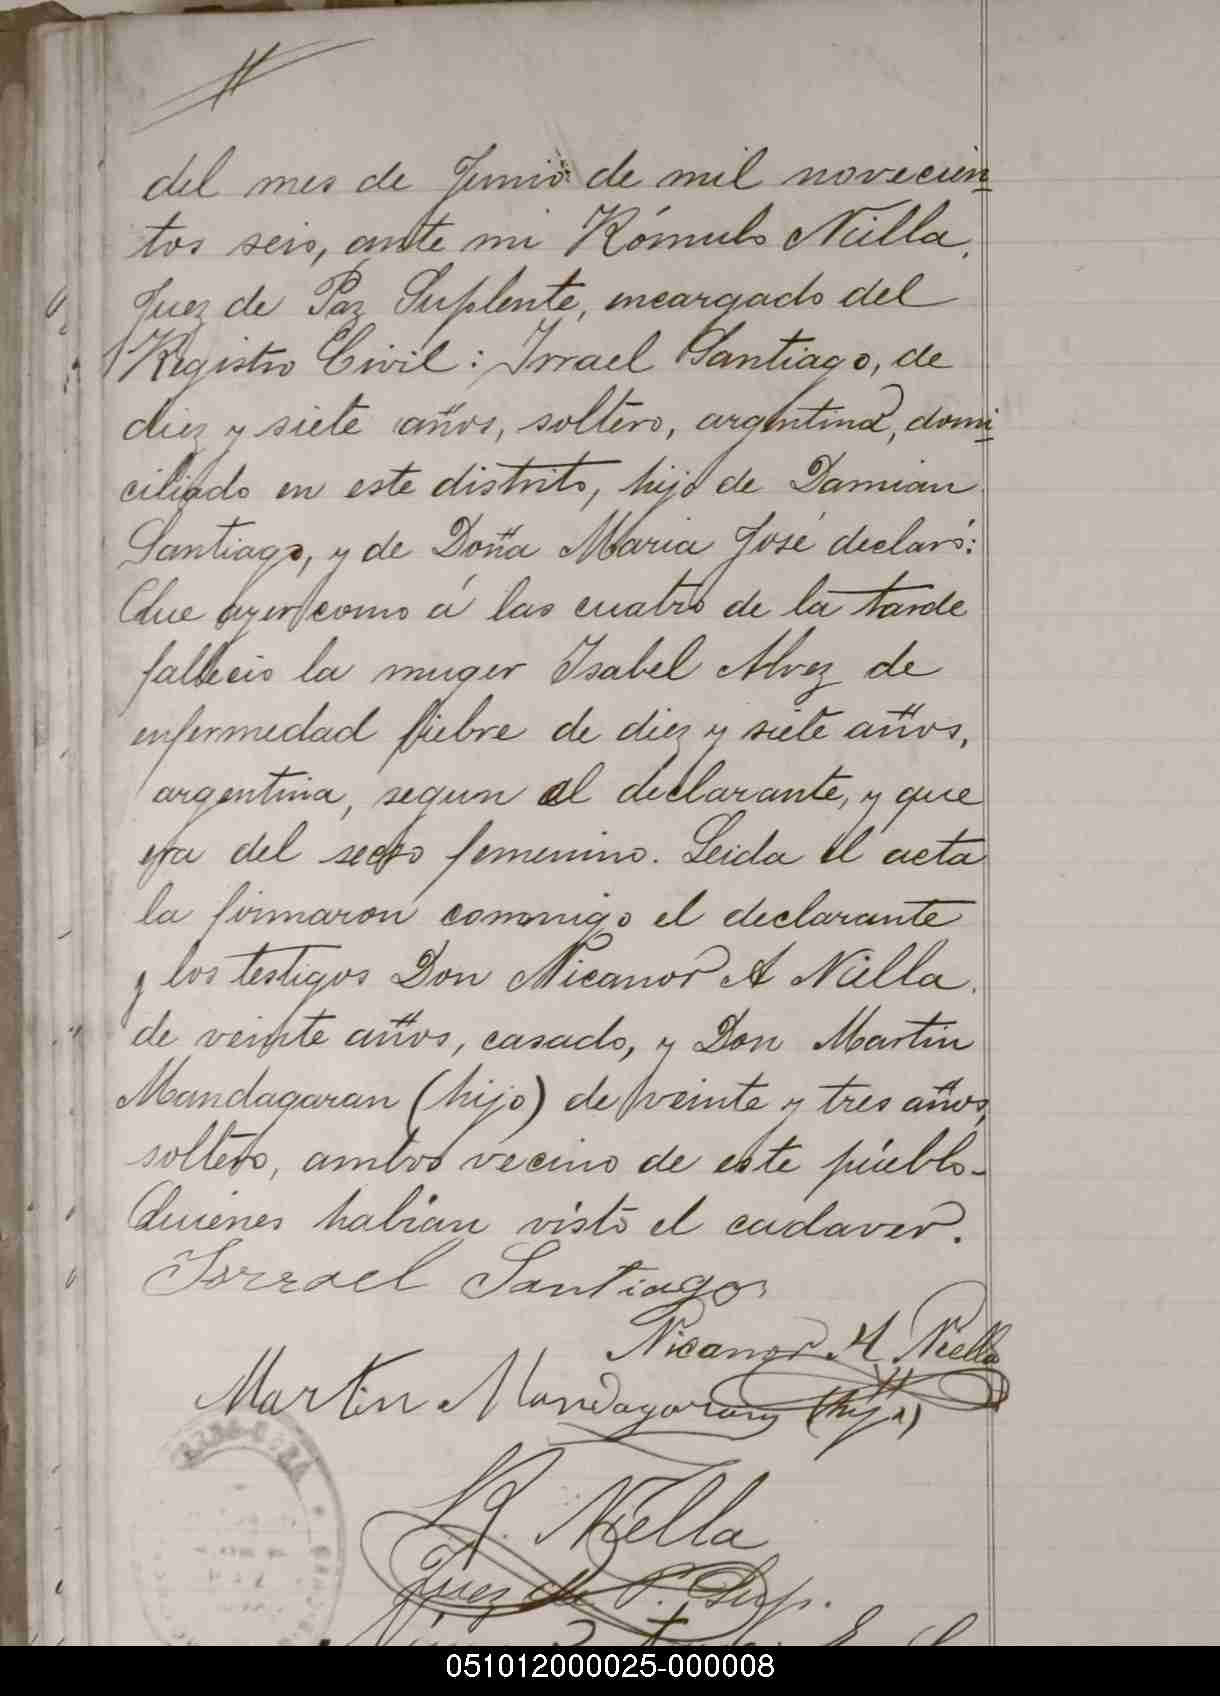 del mes de Junio de mil novecien
tos seis, ante mi Rómulo Niella,
Juez de Paz Suplente, encargado del
Registro Civil: Isrrael Santiago, de
diez y siete años, soltero, argentino, domi
ciliado en este distrito, hijo de Damian
Santiago, y de Doña Maria José declaró:
Que ayer como á las cuatro de la tarde
fallecio la muger Isabel Alvez de
enfermedad fiebre de diez y siete años,
argentina, segun el declarante, y que
era del secso femenino. Leida el acta
la firmaron conmigo el declarante
y los testigos Don Nicanor A Niella.
de veinte años, casado, y Don Martin
Mandagaran (hijo) de veinte y tres años,
soltero, ambos vecino de este pueblo-
Quienes habian visto el cadaver.
Isrrael Santiago
Nicanor A. Niella
Martin Mandagaran (hijo)
R. Niella
Juez de P. Sup.
051012000025-000008